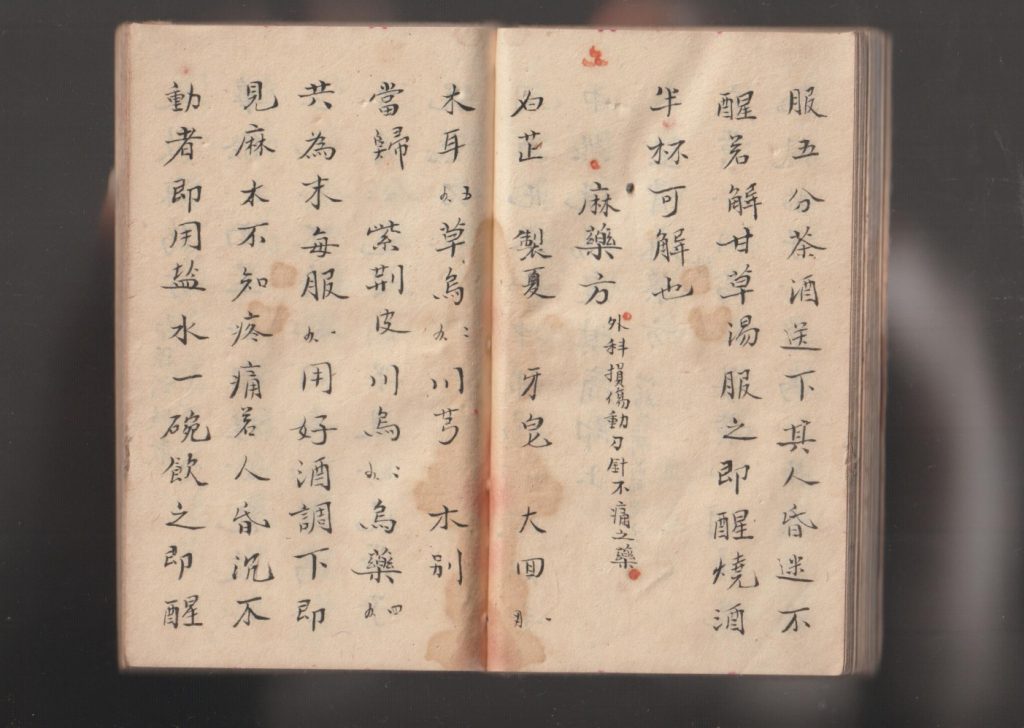 服五分茶酒送下其人昏迷不
醒若解甘草湯服之即醒燒酒
半杯可解也
麻藥方 外科損傷動刀針不痛之藥
白芷 製夏 牙皂 大回
木耳 草烏 川芎 木别
當歸 紫荆皮 川烏 烏藥
共為末每服 用好酒調下即
見麻木不知疼痛若人昏沉不
動者即用盐水一碗飲之即醒